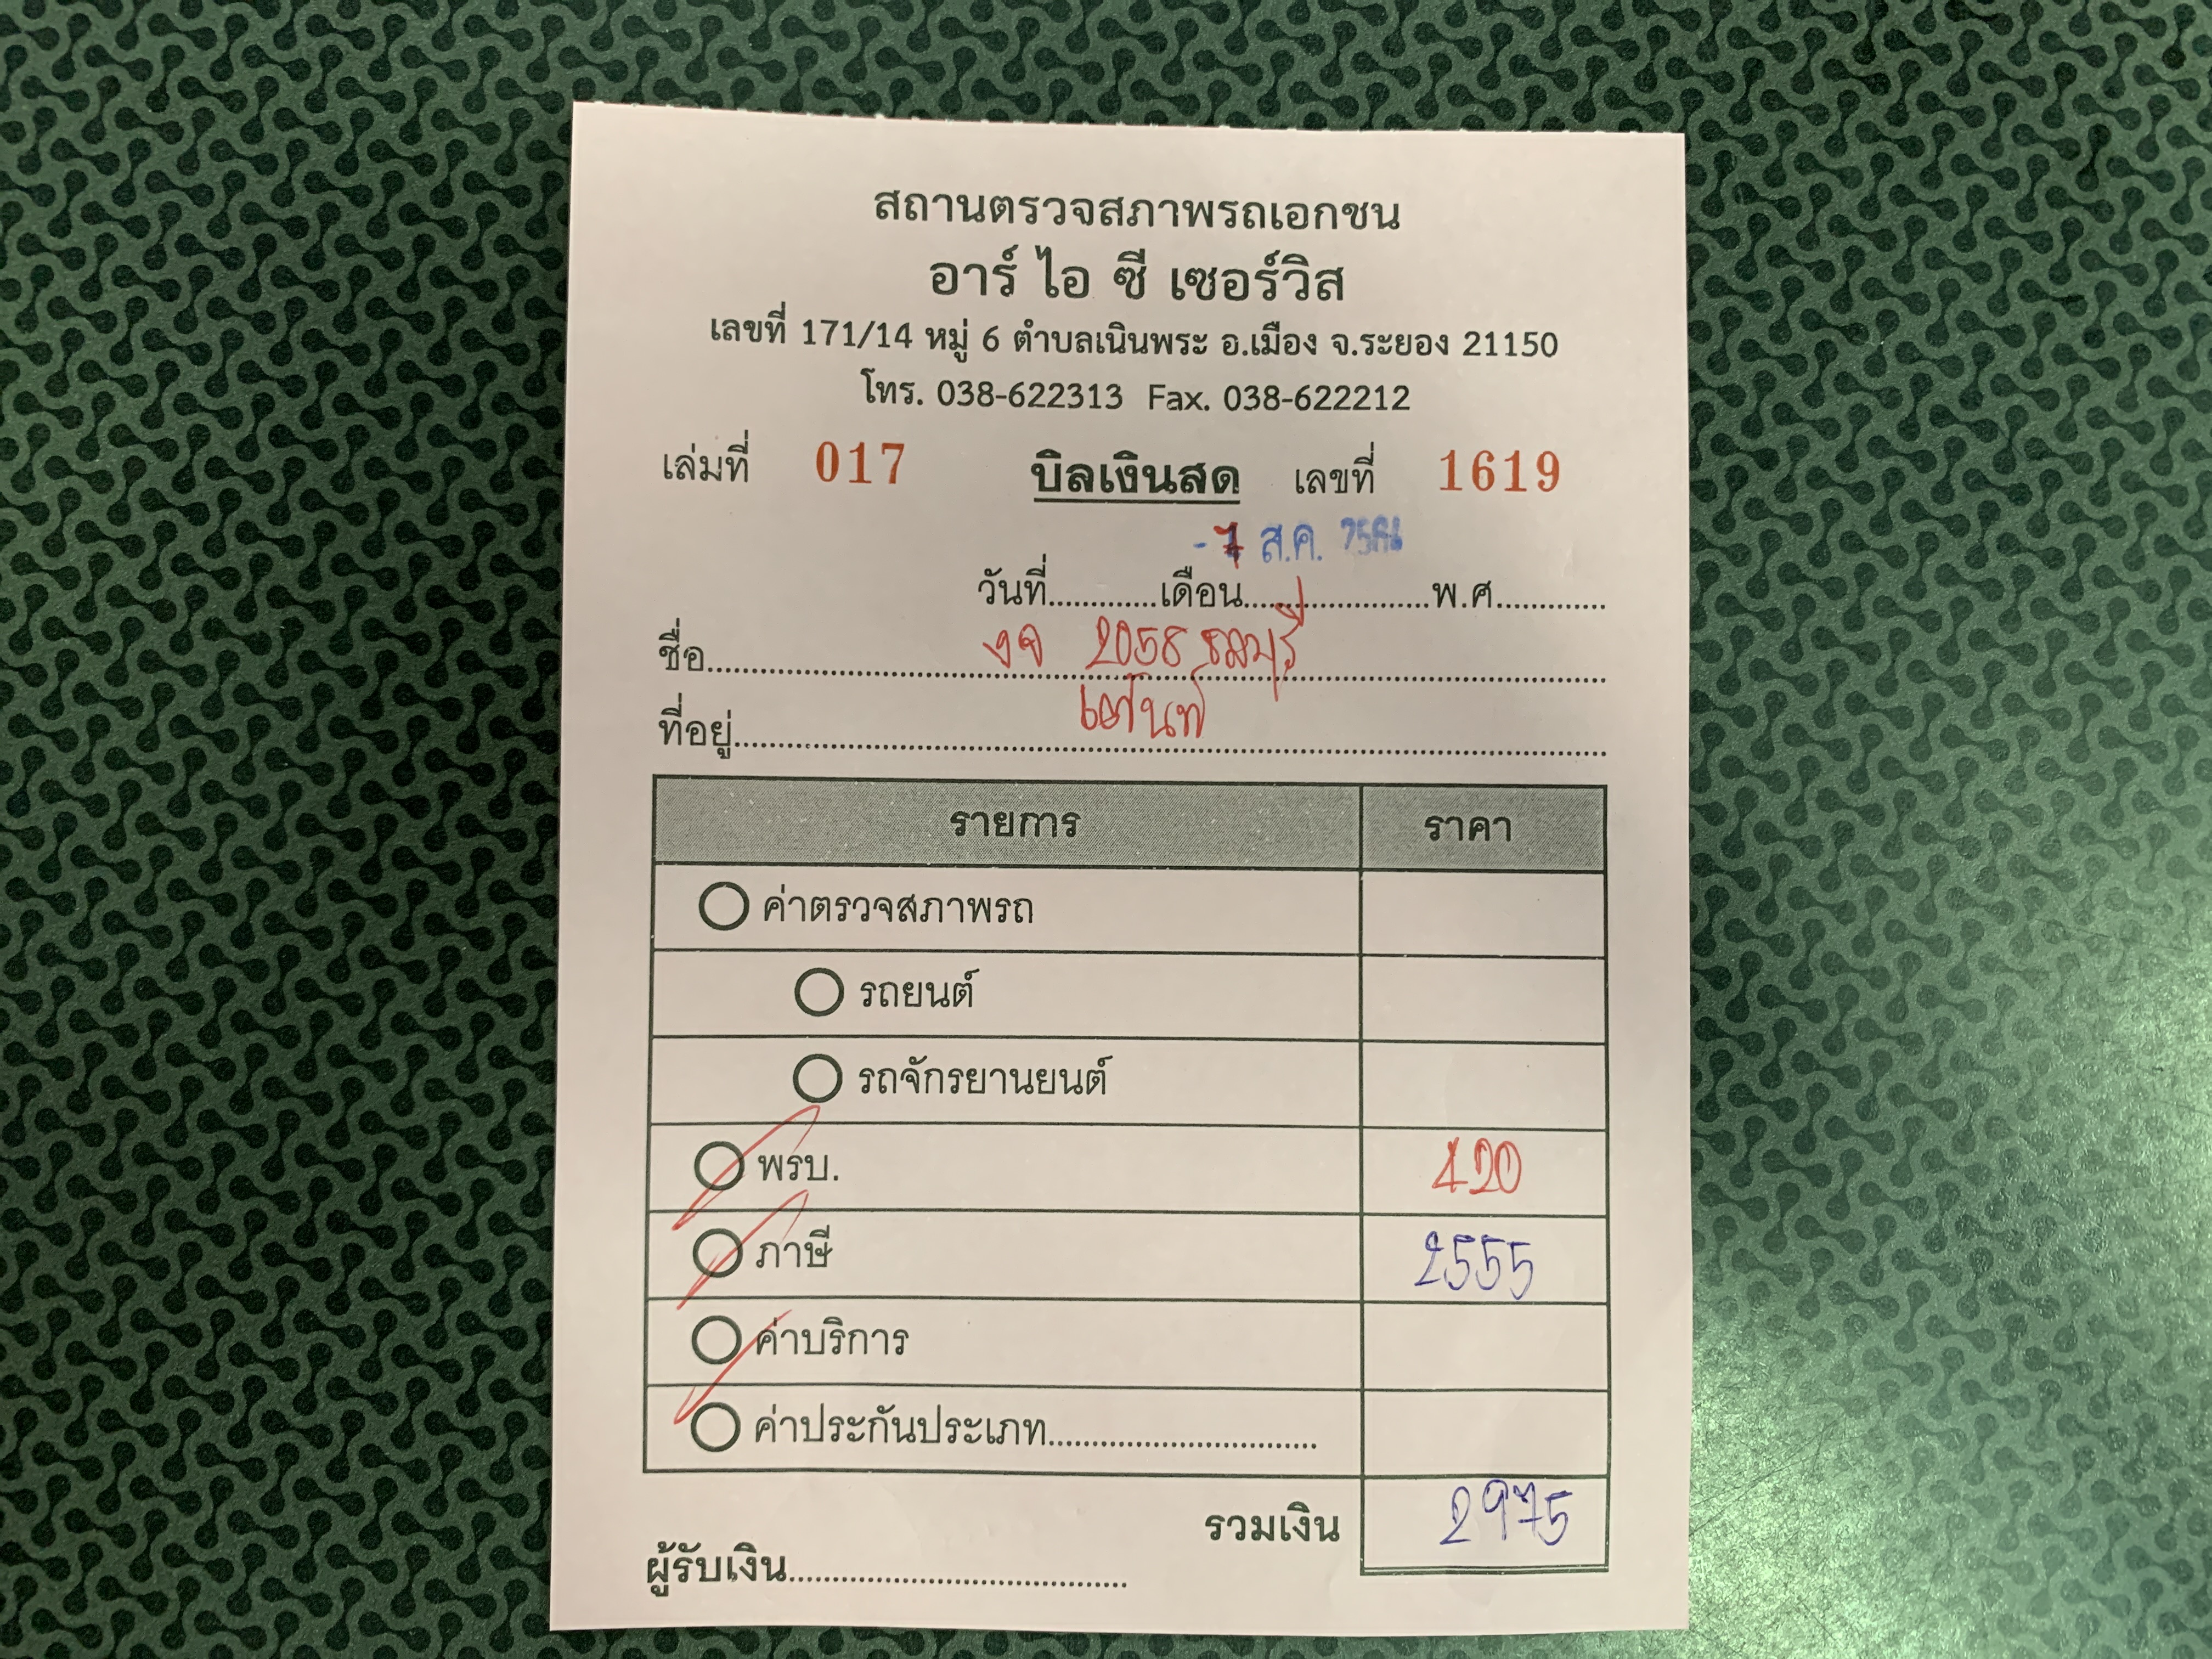 สถานตรวจสภาพรถเอกชน
อาร์ ไอ ซี เซอร์วิส
เลขที่ 171/14 หมู่ 6 ตำบลเนินพระ อ.เมือง จ.ระยอง 21150
โทร. 038-622313 Fax. 038-622212
เล่มที่ 017 บิลเงินสด เลขที่ 1619
ส.ค.
วันที่............เดือน......................พ.ศ.............
ชื่อ 2058
ที่อยู่
รายการ ราคา
ค่าตรวจสภาพรถ
รถยนต์
รถจักรยานยนต์
พรบ. 420
ภาษี 2555
ค่าบริการ
ค่าประกันประเภท..............................
รวมเงิน 2975
ผู้รับเงิน......................................